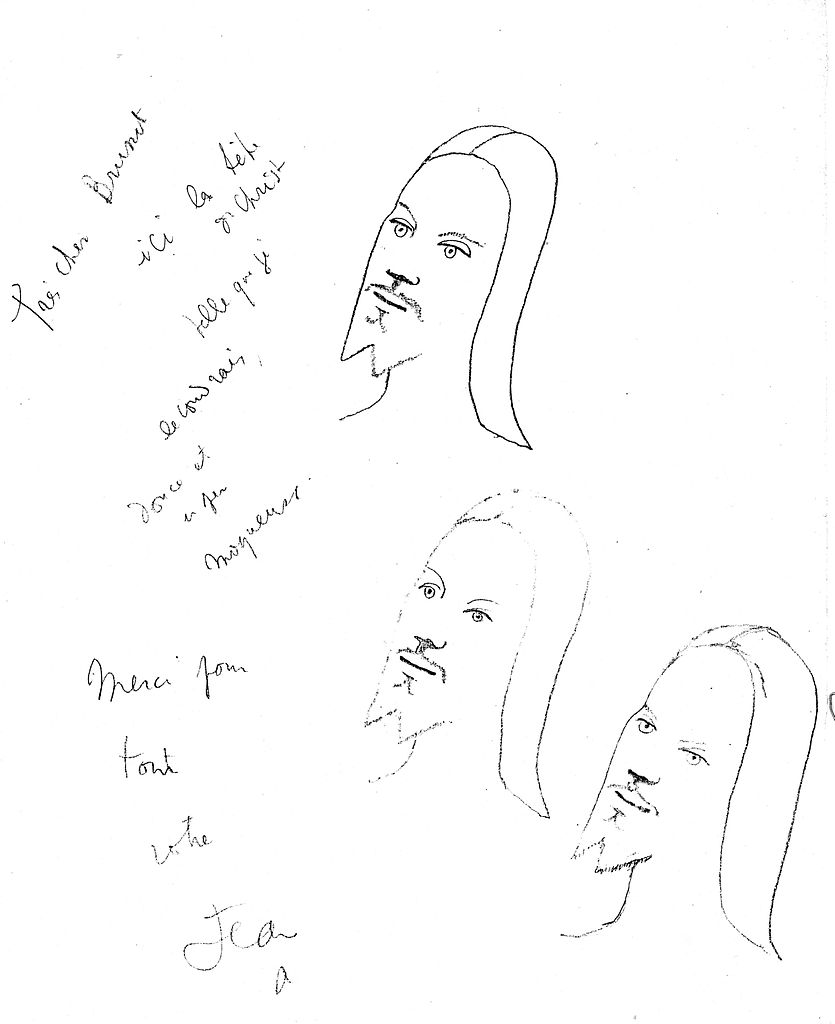 Très cher Brunet
ici la tête
du Christ
telle que je
le voudrais,
douce et
un peu
moqueuse.
Merci pour
tout
votre
Jean